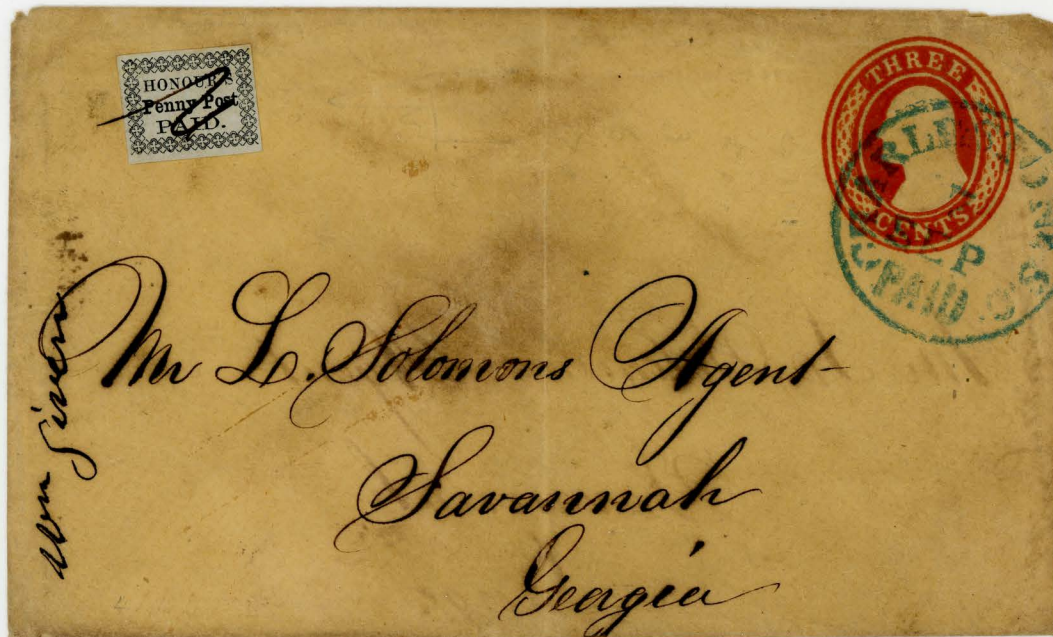 HONOUR'S
Penny Post
PAID.
THREE
CENTS
CHARLESTON S.C.
SEP
PAID
Mr L. Solomons Agent
Savannah
Georgia